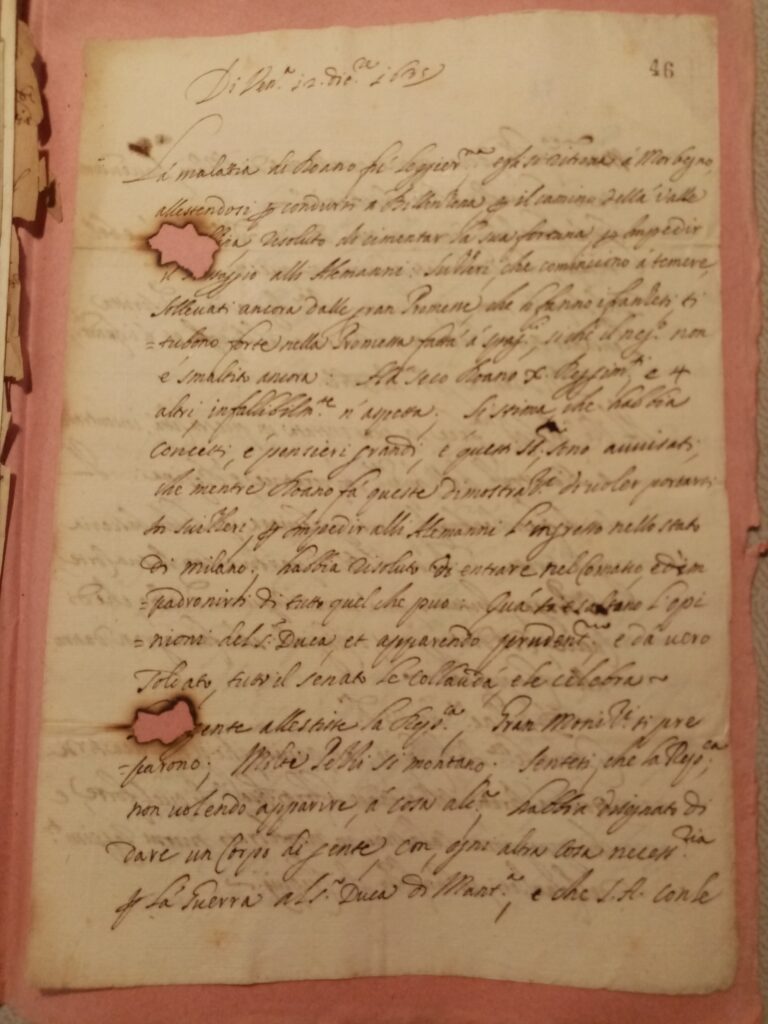 Di Ven.ª 12. Xbre 1635
46
La malatia di Roano fù leggier.ma egli si ritrova à Morbegno,
allestendosi per condursi à Bellinzona per il camino della Valle
risoluto di cimentar la sua fortuna per impedir
il passaggio alli Alemanni: Suizzeri, che cominciano à temere,
sollevati ancora dalle gran Promesse che li fanno i franzesi ti
=tubano forte nella Promessa fatta à Spag.ª, si che il neg.º non
è smaltito ancora: Hà seco Roano X. Reggim.ti e 4
altri, infallibilm.te n'aspetta; Si stima, che habbia
concetti, e pensieri grandi, e questi SS.ri sono avvisati,
che mentre Roano fà queste dimostra.ni di voler portarsi
in Suizzeri, per impedir alli Alemanni l'ingresso nello stato
di Milano, habbia risoluto di entrare nel Comasco, ed im
=padronirsi di tutto quel che può: Quà si esaltano l'opi
=nioni del S.r Duca, et apparendo prudent.me e dà vero
Soldato, tutto il Senato le collauda, e le celebra ~
gente allestite la Rep.ca, Gran Moniz.ni si pre
=parono; Molti Pezzi si montano. Sentesi, che la Rep.ca,
non volendo apparire, à cosa alc.ª, habbia disegnato di
dare un Corpo di gente, con, ogni altra cosa necess.ria
per la Guerra al S.r Duca di Mant.ª, e che S.A. con le